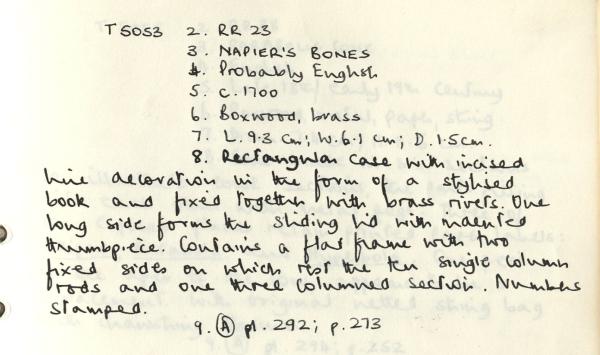 T 5053 2. RR 23
3. NAPIER'S BONES
4. Probably English
5. c. 1700
6. Boxwood, brass
7. L. 9.3 cm; W. 6.1 cm; D. 1.5cm.
8. Rectangular case with incised
line decoration in the form of a stylised
book and fixed together with brass rivets. One
long side forms the sliding lid with indented
thumbpiece. Contains a flat frame with two
fixed sides on which rest the ten single column
rods and one three columned section. Numbers
stamped.
9. (A) pl. 292; p. 273